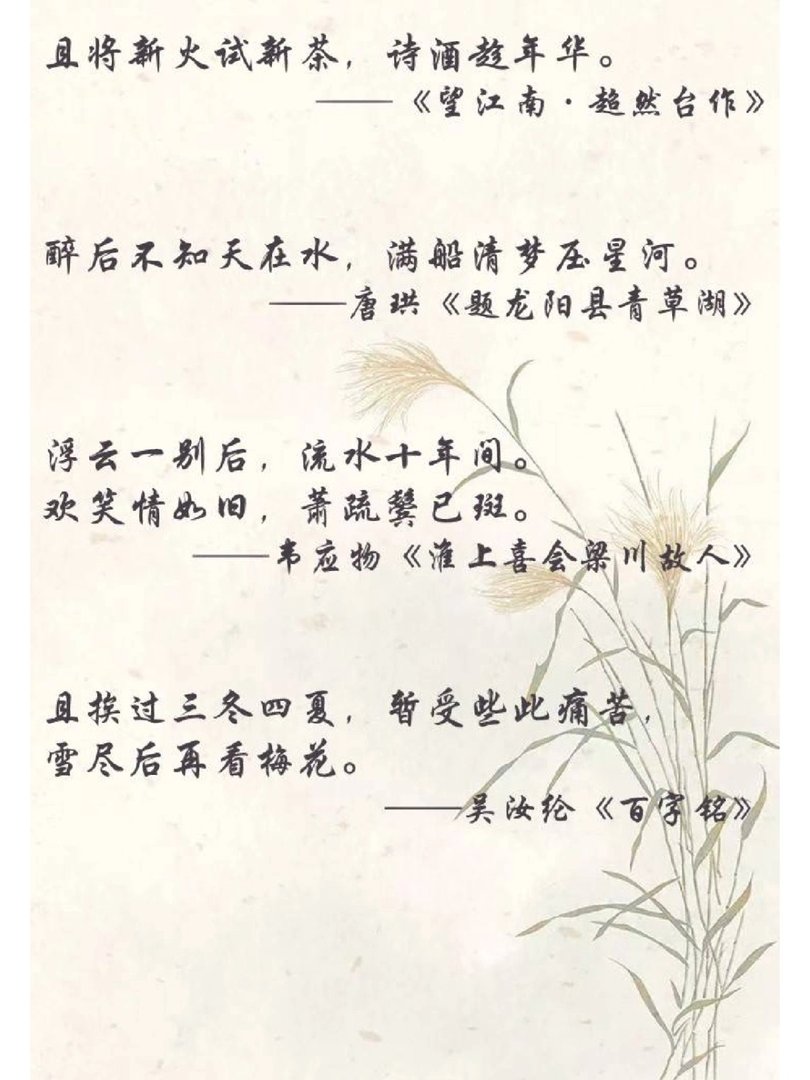 且将新火试新茶，诗酒趁年华。
——《望江南·超然台作》
醉后不知天在水，满船清梦压星河。
——唐珙《题龙阳县青草湖》
浮云一别后，流水十年间。
欢笑情如旧，萧疏鬓已斑。
——韦应物《淮上喜会梁川故人》
且挨过三冬四夏，暂受些此痛苦，
雪尽后再看梅花。
——吴汝纶《百字铭》